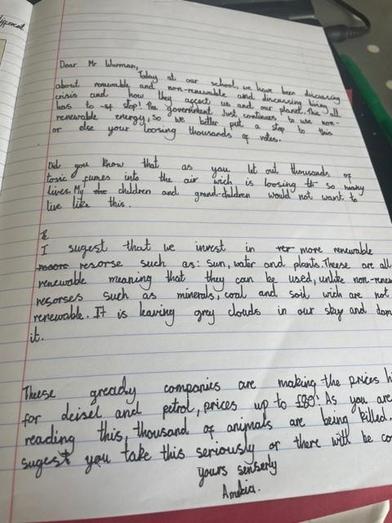 Dear Mr Wurman,
Today at our school, we have been discussing
about renewable and non-renewable and discussing living
crisis and how they affect us and our planet. This all
has to stop! The government just continues to use non-
renewable energy, so we better put a stop to this
or else your loosing thousands of votes.
Did you know that as you let out thousands of
toxic fumes into the air wich is loosing so many
lives. My children and grand-children would not want to
live like this.
I sugest that we invest in more renewable
resorse such as: sun, water and plants. These are all
renewable meaning that they can be used, unlike non-renew
resorses such as minerals, coal and soil wich are not
renewable. It is leaving grey clouds in our sky and dam
it.
These gready companies are making the prices hi
for deisel and petrol, prices up to £80! As you are
reading this, thousand of animals are being killed.
sugest you take this seriously or there with be co
yours senserly